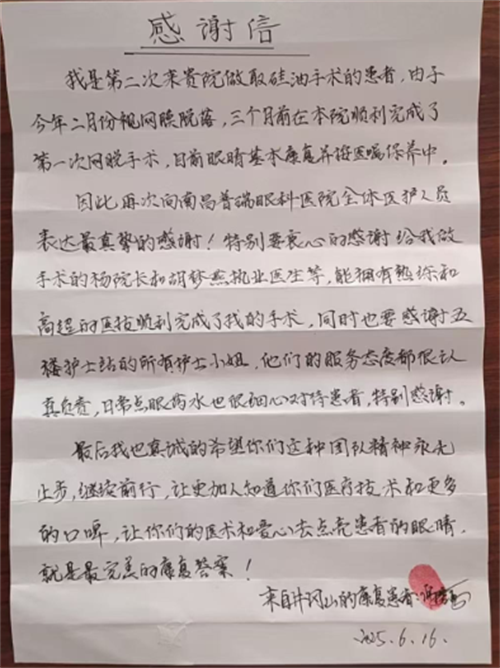 感谢信
我是第二次来贵院做取硅油手术的患者,由于
今年二月份视网膜脱落,三个月前在本院顺利完成了
第一次网脱手术,目前眼睛基本康复并按医嘱保养中。
因此再次向南昌普瑞眼科医院全体医护人员
表达最真挚的感谢!特别要衷心的感谢给我做
手术的杨院长和胡梦燕执业医生等,能拥有熟练和
高超的医技顺利完成了我的手术,同时也要感谢五
楼护士站的所有护士小姐,他们的服务态度都很认
真负责,日常点眼药水也很细心对待患者,特别感谢。
最后我也真诚的希望你们这种团队精神永无
止步,继续前行,让更加人知道你们医疗技术和更多
的口啤,让你们的医术和爱心去点亮患者的眼睛,
就是最完美的康复答案!
来自井冈山的康复患者:
2025.6.16.